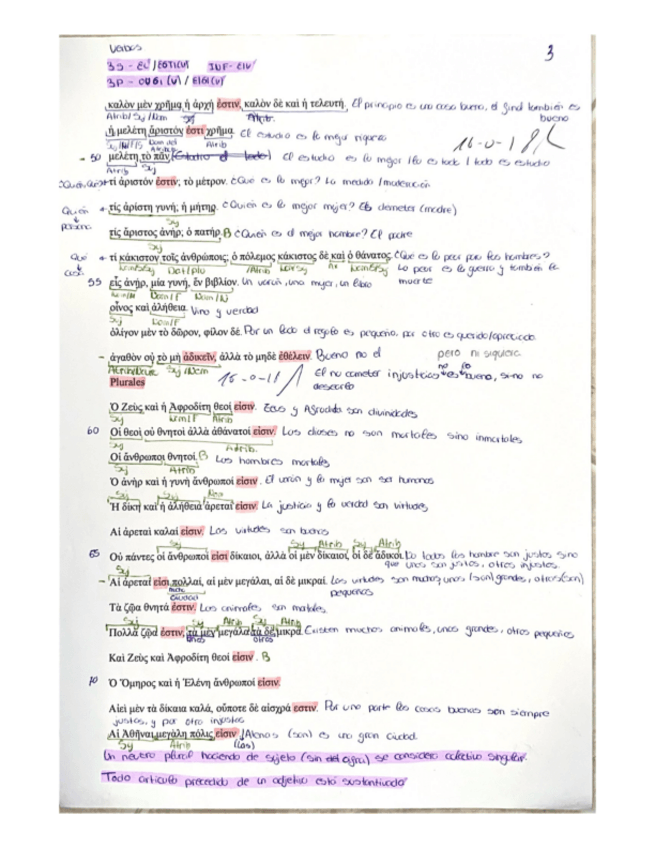 Verbos
3
3S - EI / ΕΣΤΙ(V) INF - EIV
3P - OUSI (V) / ΕΙΣΙ(V)
καλὸν μὲν χρῆμα ἡ ἀρχή ἐστιν, καλὸν δὲ καὶ ἡ τελευτή. El principio es una cosa buena, el final también es buena
Atrib/Sj/Nom Atrib.
ἡ μελέτη ἄριστόν ἐστι χρῆμα. El estudio es la mejor riqueza
16-0-18
- 50 μελέτη τὸ πᾶν. El estudio es lo mejor / lo es todo / todo es estudio
Atrib Sj
τί ἄριστόν ἐστιν; τὸ μέτρον. ¿Qué es lo mejor? La medida / moderación
Quién
↓
persona
τίς ἀρίστη γυνή; ἡ μήτηρ. ¿Quién es la mejor mujer? demeter (madre)
Sj
τίς ἄριστος ἀνήρ; ὁ πατήρ. B ¿Quién es el mejor hombre? El padre
Sj
Qué
↓
cosa
τί κάκιστον τοῖς ἀνθρώποις; ὁ πόλεμος κάκιστος δὲ καὶ ὁ θάνατος. ¿Qué es lo peor para los hombres?
Dat/plu Atrib Lo peor es la guerra y también la muerte
55 εἷς ἀνήρ, μία γυνή, ἓν βιβλίον. Un varón, una mujer, un libro
Nom/M Nom/F Nom/N
οἶνος καὶ ἀλήθεια. Vino y verdad
Sj Nom/F
ὀλίγον μὲν τὸ δῶρον, φίλον δέ. Por un lado el regalo es pequeño, por otro es querido/apreciado
- ἀγαθὸν οὐ τὸ μὴ ἀδικεῖν, ἀλλὰ τὸ μηδὲ ἐθέλειν. Bueno no el pero ni siquiera
Sj/Nom 16-0-11 El no cometer injusticias no es lo bueno, sino no desearlo
Plurales
Ὁ Ζεὺς καὶ ἡ Ἀφροδίτη θεοί εἰσιν. Zeus y Afrodita son divinidades
Sj Nom/F Atrib
60 Οἱ θεοὶ οὐ θνητοὶ ἀλλὰ ἀθάνατοί εἰσιν. Los dioses no son mortales sino inmortales
Sj Atrib.
Οἱ ἄνθρωποι θνητοί. B Los hombres mortales
Sj Atrib
Ὁ ἀνὴρ καὶ ἡ γυνὴ ἄνθρωποί εἰσιν. El varón y la mujer son ser humanos
Ἡ δίκη καὶ ἡ ἀλήθεια ἀρεταί εἰσιν. La justicia y la verdad son virtudes
Αἱ ἀρεταὶ καλαί εἰσιν. Las virtudes son buenas
Sj Atrib Sj Atrib
65 Οὐ πάντες οἱ ἄνθρωποί εἰσι δίκαιοι, ἀλλὰ οἱ μὲν δίκαιοι, οἱ δὲ ἄδικοι. No todos los hombre son justos sino
que unos son justos, otros injustos.
Sj
- Αἱ ἀρεταί εἰσι πολλαί, αἱ μὲν μεγάλαι, αἱ δὲ μικραί. Las virtudes son muchas, unas (son) grandes, otras (son) pequeñas
Τὰ ζῷα θνητά ἐστιν. Los animales son mortales.
Sj Sj Atrib Sj Atrib
Πολλὰ ζῷά ἐστιν, τὰ μὲν μεγάλα τὰ δὲ μικρά. Existen muchos animales, unos grandes, otros pequeños
unos otros
Καὶ Ζεὺς καὶ Ἀφροδίτη θεοί εἰσιν. B
70 Ὁ Ὅμηρος καὶ ἡ Ἑλένη ἄνθρωποί εἰσιν.
Αἰεὶ μὲν τὰ δίκαια καλά, οὔποτε δὲ αἰσχρά ἐστιν. Por una parte las cosas buenas son siempre
justas, y por otro injustas
Αἱ Ἀθῆναι μεγάλη πόλις εἰσίν. Atenas (son) es una gran ciudad.
Sj Atrib (Las)
Un neutro plural haciendo de sujeto (sin del agra) se considera colectivo singular.
Todo artículo precedido de un adjetivo está sustantivado